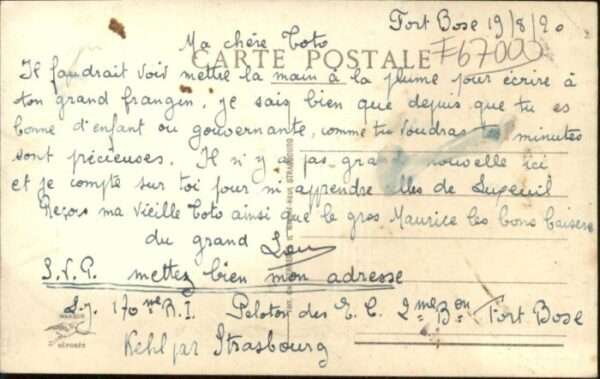 Fort Bose 19/8/20
F67000
Ma chère Toto
CARTE POSTALE
Il faudrait voir mettre la main à la plume pour écrire à
ton grand frangin, je sais bien que depuis que tu es
bonne d'enfant ou gouvernante, comme tu voudras minutes
sont précieuses. Il n'y a pas grand nouvelle ici
et je compte sur toi pour m'apprendre elles de Luxeuil
Reçois ma vieille Toto ainsi que le gros Maurice les bons baisers
du grand Lou
S.V.P. mettez bien mon adresse
S.j. 170 me R.I Peloton des E.C. 2me Bon Fort Bose
Kehl par Strasbourg
MARQUE
DÉPOSÉE